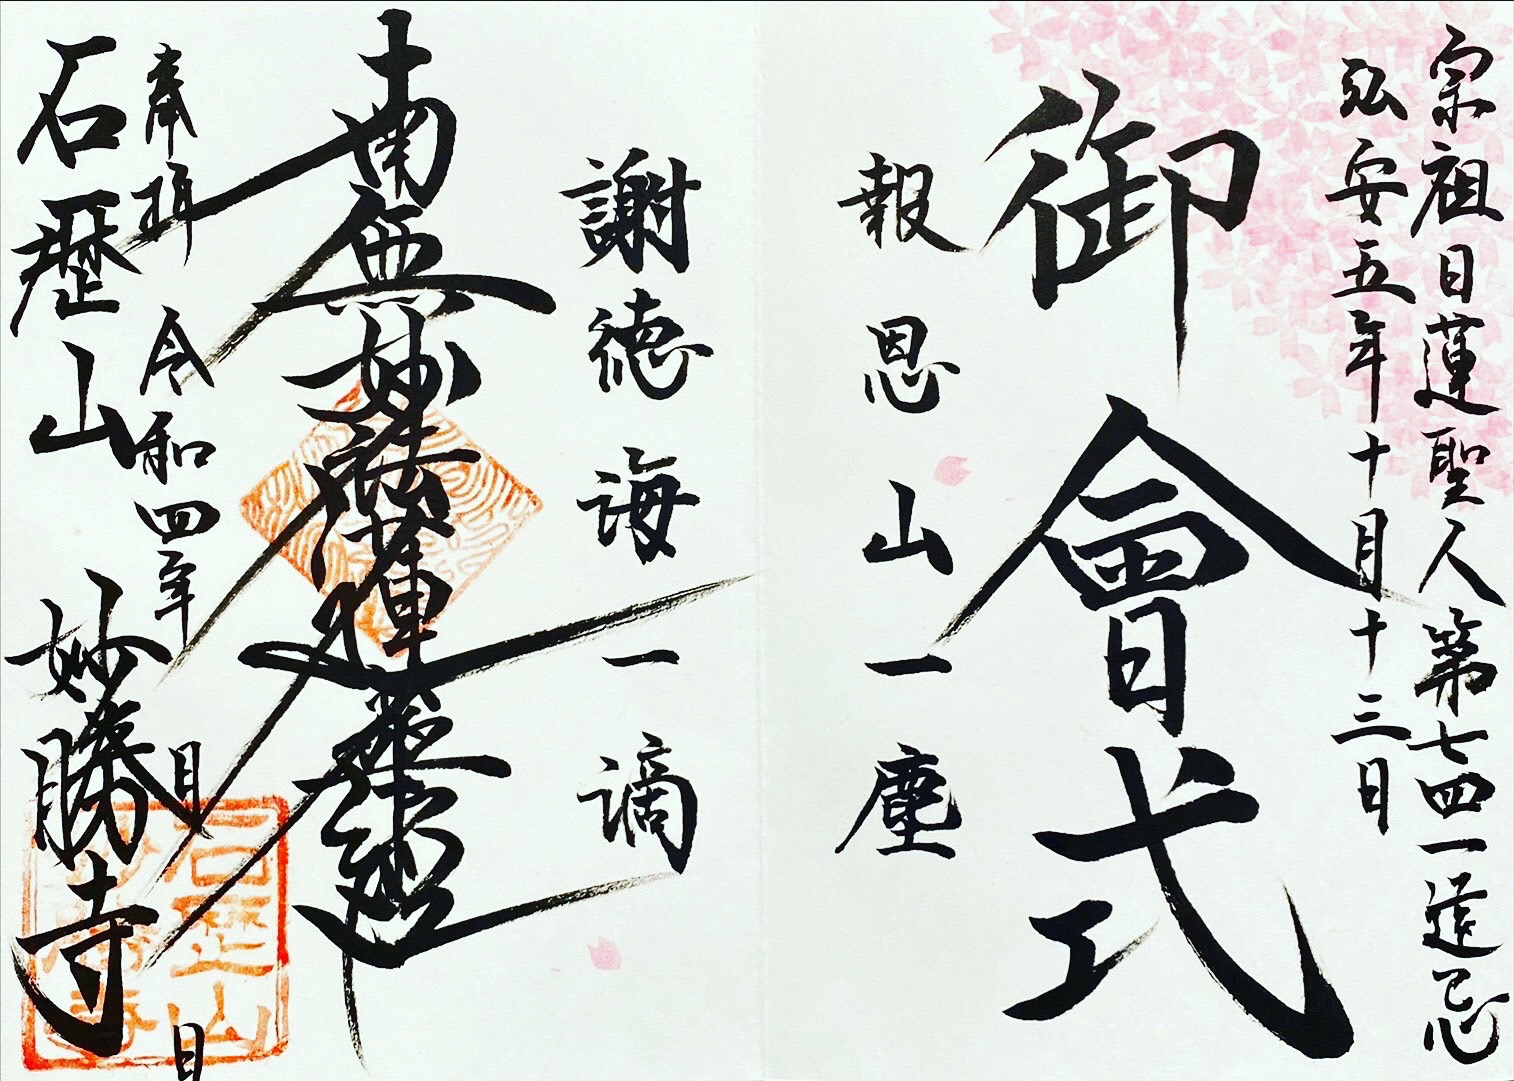 宗祖日蓮聖人第七四一遠忌
弘安五年十月十三日
御會式
報恩山一塵
謝徳海一滴
南無妙法蓮華経
奉拝 令和四年 月 日
石歴山 妙勝寺
石歴山
妙勝寺